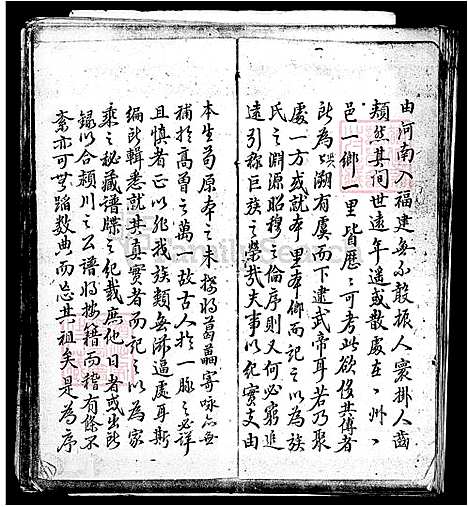 由河南入福建無不殷振人寰掛人齒
頰然其間世遠年遥或散處在〻州〻
邑一鄉一里皆歷〻可考此欲後其傳者
所為溯有虞而下逮武帝耳若乃聚
處一方或就本里本鄉而記之以為族
氏之淵源昭穆之倫序則又何必窮追
遠引称巨族之榮哉夫事以紀實支由
本生苟原本之未探將葛藟寄咏
補於高曾之萬一故古人於一脉之必詳
且慎者正以非我族類無滋逼處耳斯
編所輯悉就其真實者而記之以為家
乘之秘藏譜牒之紀載庶他日者或出所
錄以合潁川之公譜將按籍而稽有條不
紊亦可無蹈数典而忘其祖矣是為序